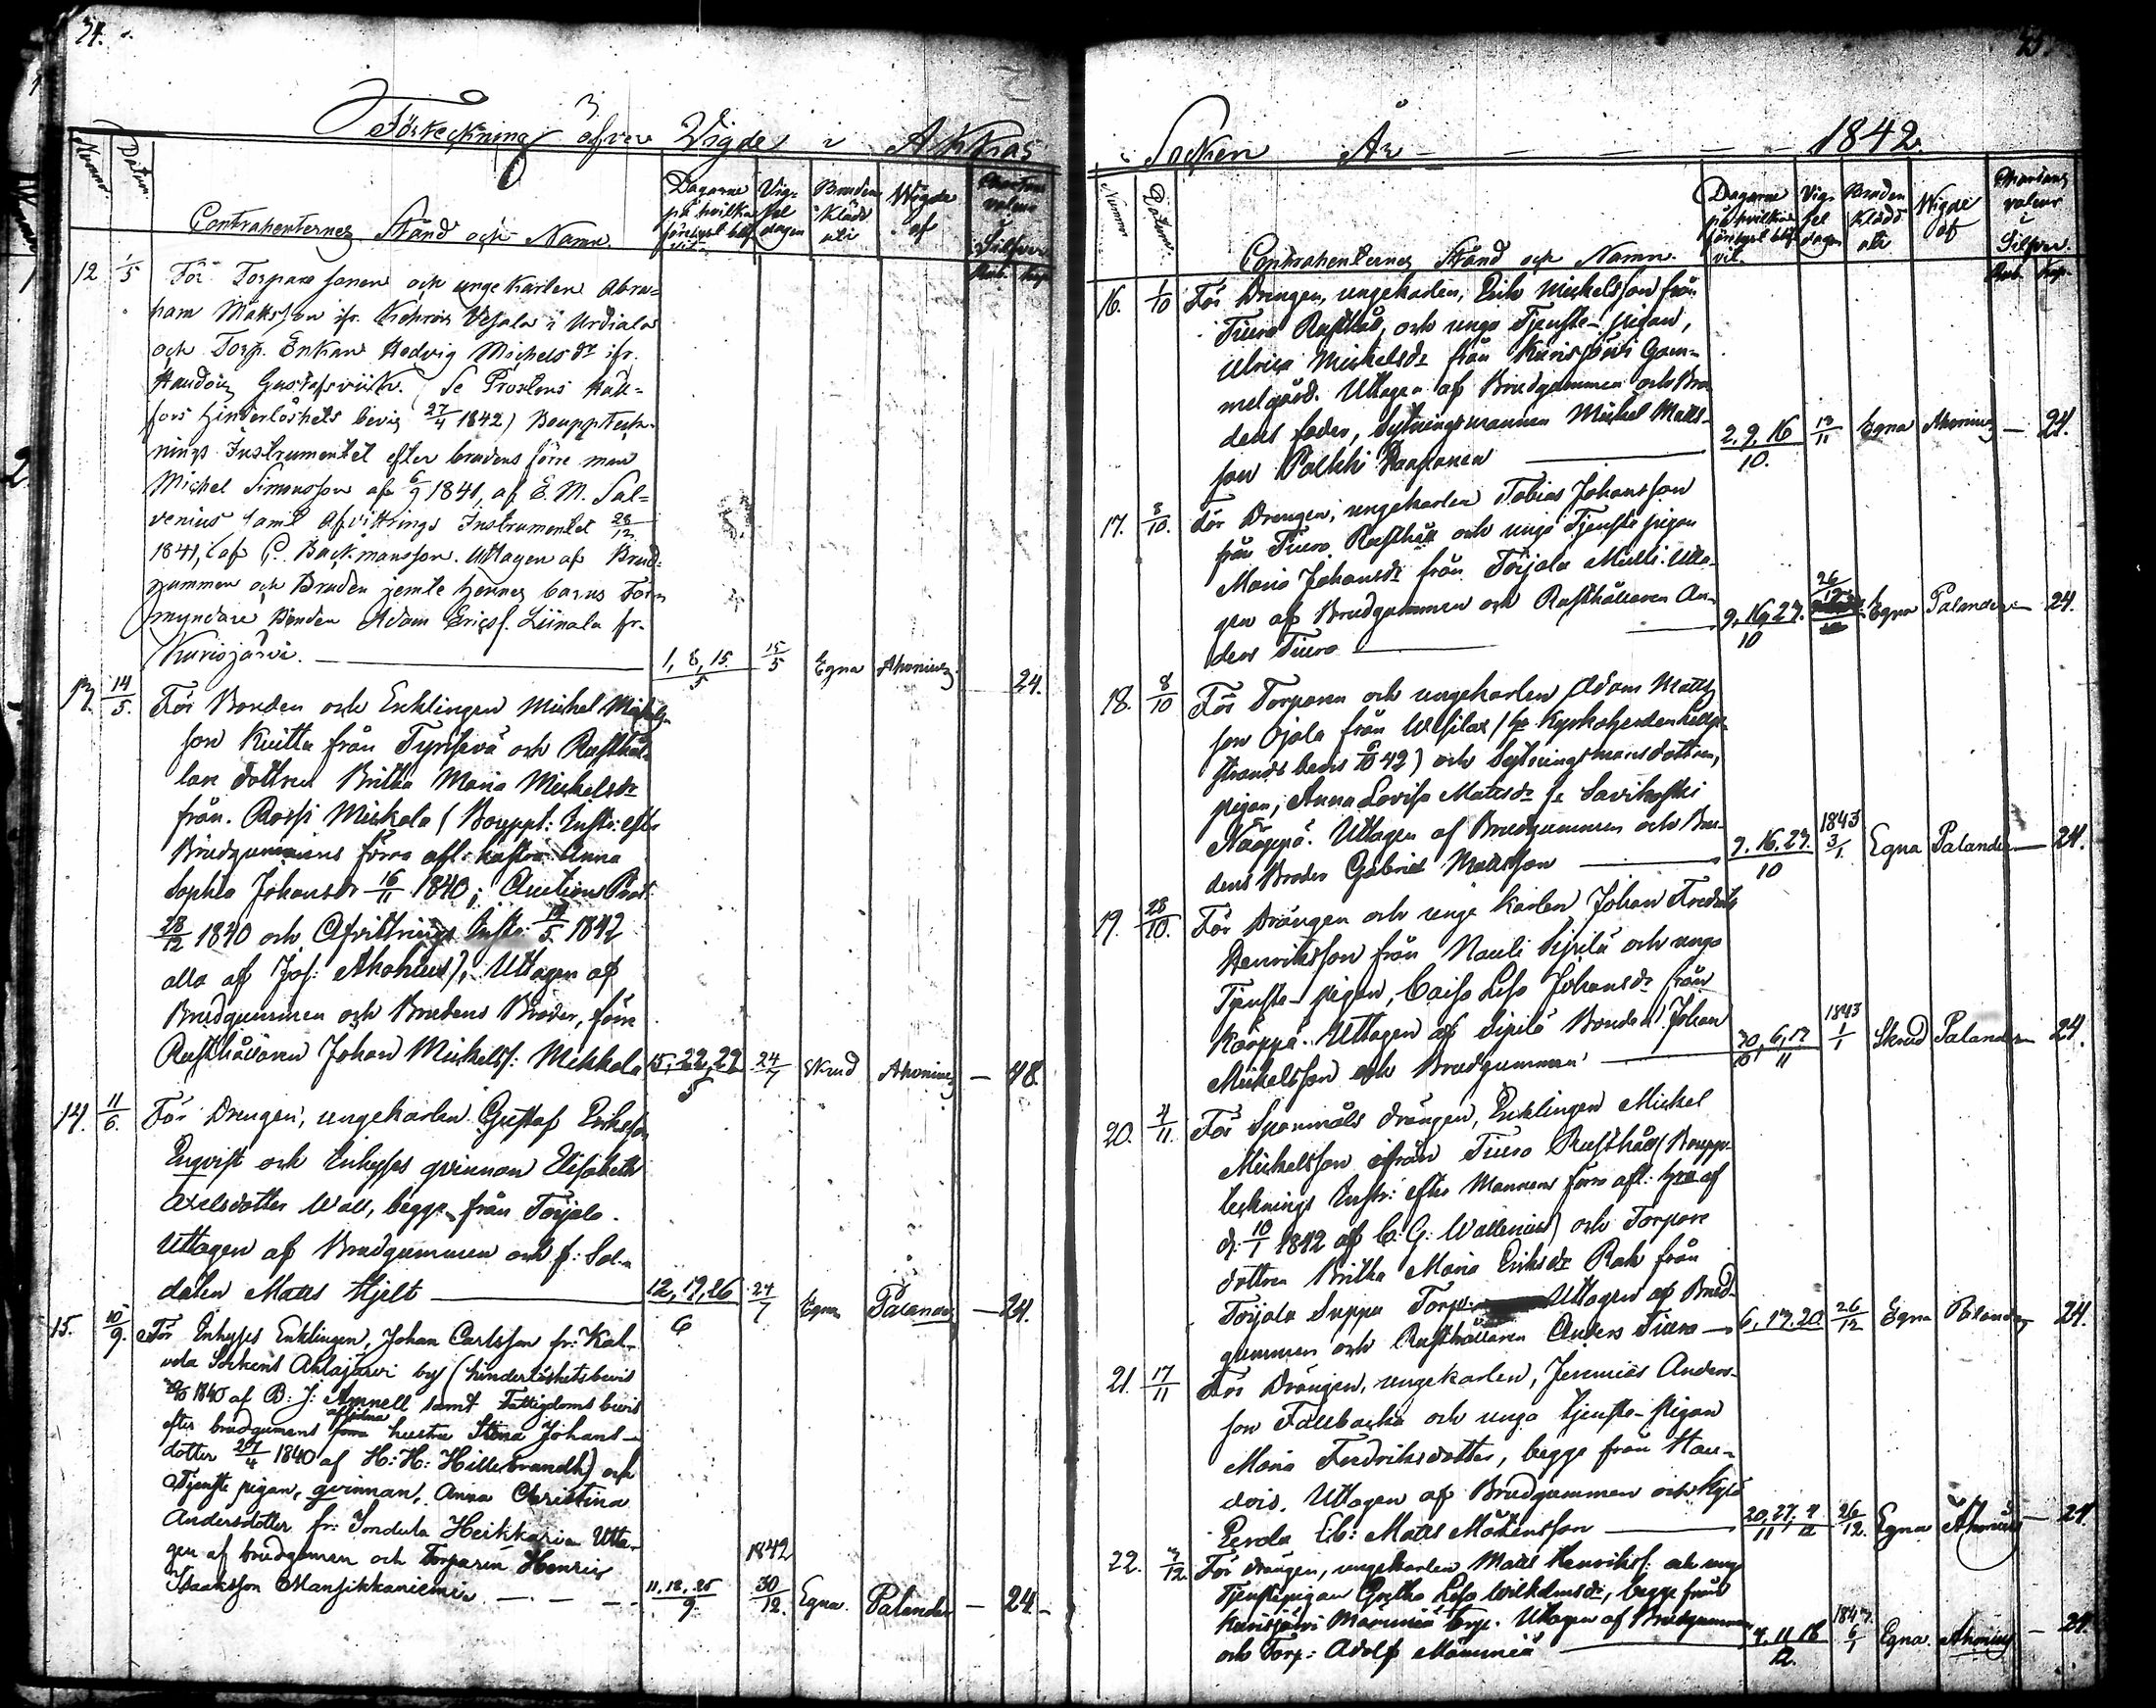 34.
Förteckning öfver Vigde i Akkas
Nummer
Datum
Contrahenternes Stånd och Namn
Dagarne på hvilka förelyst blef
Vigsel dagen
Bruden klädd uti
Wigde af
Silfver
Rub. Kop.
12 1/5 För Torpare sonen och ungekarlen Abra=
ham Mattsson ifr. Vesala i Urdiala
och Torp. Enkan Hedvig Michelsdr ifr.
Haudois Gustafsviik. (Se Prosten
hinderlöshets bevis 27/4 1842) Bouppteck=
nings Instrumentet efter brudens förre man
Michel Simonsson af 6/9 1841, af E. M. Sal=
venius samt Afvittrings Instrumentet 28/12
1841, af Backmansson. Uttagen af Brud=
gummen och Bruden jemte hennes barns För=
myndare Bonden Adam Ericsf. Liinala fr.
Kurisjärvi. 1, 8, 15/5 15/5 Egna Ahonius 24.
13. 14/5. För Bonden och Enklingen Michel Michels=
son Kuitta från Tyrfvä och Rusthål=
lare dottren Britha Maria Michelsdr
från Rossi Mickola (Bouppt: Instr: efter
Brudgummens förra afl. hustru Anna
Sophia Johansdr 16/11 1840; Auctions Prot:
28/12 1840 och Afvittrings Instr: 14/5 1842
alla af Jos: Ahonius), Uttagen af
Brudgummen och Brudens Broder, förre
Rusthållaren Johan Mickelsf: Mikkola 15, 22, 29/5 24/7 Skrud Ahonius — 48.
14. 11/6. För Drengen, ungekarlen Gustaf Eriksson
Enqvist och Inhyses qvinnan Elisabeth
Axelsdotter Wall, begge från Toijala.
Uttagen af Brudgummen och f: Sol=
daten Matts Hjelt 12, 19, 26/6 24/7 Egna Palander — 24.
15. 10/9. För Inhyses Enklingen, Johan Carlsson fr: Kal=
vola Sockens Ahlajärvi by (hinderlöshetsbevis
1840 af B: J: Amnell samt Fattigdoms bevis
efter brudgumens aflidna förra hustru Stina Johans=
dotter 24/4 1840 af H: H: Hillebrandt) och
Tjenste pigan, qvinnan, Anna Christina
Andersdotter fr: Sondula Heikkari. Utta=
gen af brudgumen och Torparen Henric
Isaaksson Mansikkaniemi 11. 18. 25/9. 1842 30/12. Egna Palander — 24.
i Socken År 1842.
Nummer
Datum
Contrahenternes Stånd och Namn
Dagarne på hvilka förelyst blef
Vigsel dagen
Bruden klädd uti
Wigde af
valeur i Silfver
Rub. Kop.
16. 1/10 För Drengen, ungekarlen, Erik Mickelsson från
Tiura Rusthåll, och unga Tjenste-pigan,
Ulrica Michelsdr från Kurisjärvi Gam=
melgård. Uttagen af Brudgummen och Bru=
dens fader, Sytningsmannen Mickel Matts=
son 2, 9, 16/10. 13/11 Egna Ahonius — 24.
17. 8/10. För Drengen, ungekarlen Tobias Johansson
från Tiura Rusthåll och unga Tjenste pigan
Maria Johansdr från Toijala Mulli. Utta=
gen af Brudgummen och Rusthållaren An=
ders Tiura 9, 16, 23/10 26/12 Egna Palander — 24.
18. 8/10 För Torparen och ungekarlen Adam Matts=
son Ojala från Wesilax (se Kyrkoherden
strands bevis 42) och Sytningsmans dottren,
pigan, Anna Lovisa Mattsdr fr Savikoski
Nääppä. Uttagen af Brudgummen och Bru=
dens Broder Gabriel Mattsson 9, 16, 23/10 1843 3/1. Egna Palander — 24.
19. 28/10. För Drängen och unge karlen Johan Fredrik
Henriksson från Nauli Sipilä och unga
Tjenste-pigan, Caisa Lisa Johansdr från
Kärppä. Uttagen af Sipilä Bonden Johan
Mickelsson och Brudgummen 30/10, 6, 13/11 1843 1/1 Skrud Palander 24.
20. 4/11. För Spanmåls drängen, Enklingen Mickel
Mickelsson ifrån Tiura Rusthåll (Boupp=
tecknings Instr: efter Mannens förra afl: hustru af
d: 10/1 1842 af C: G: Wallenius) och Torpare
dottren Britha Maria Eriksdr Rak från
Toijala Suppa Torp. Uttagen af Brud=
gummen och Rusthållaren Anders Tiura — 6, 13, 20 26/12 Egna Palander 24.
21. 17/11 För Drängen, ungekarlen, Jeremias Anders=
son Fallbacka och unga tjenste-pigan
Maria Fredriksdotter, begge från Hau=
dois. Uttagen af Brudgummen och Kylä
Perola Eb: Matts Mårtensson 20, 27/11, 4/12 26/12. Egna Ahonius — 24
22. 3/12. För drängen, ungekarlen Matts Henriksf. och unga
Tjenstepigan Gretha Lisa Wilhelmsdr, begge från
Kurisjärvi Männiä torp. Uttagen af Brudgummen
och Torp: Adolf Männiä 4. 11. 18/12. 1843 6/1 Egna Ahonius — 24.